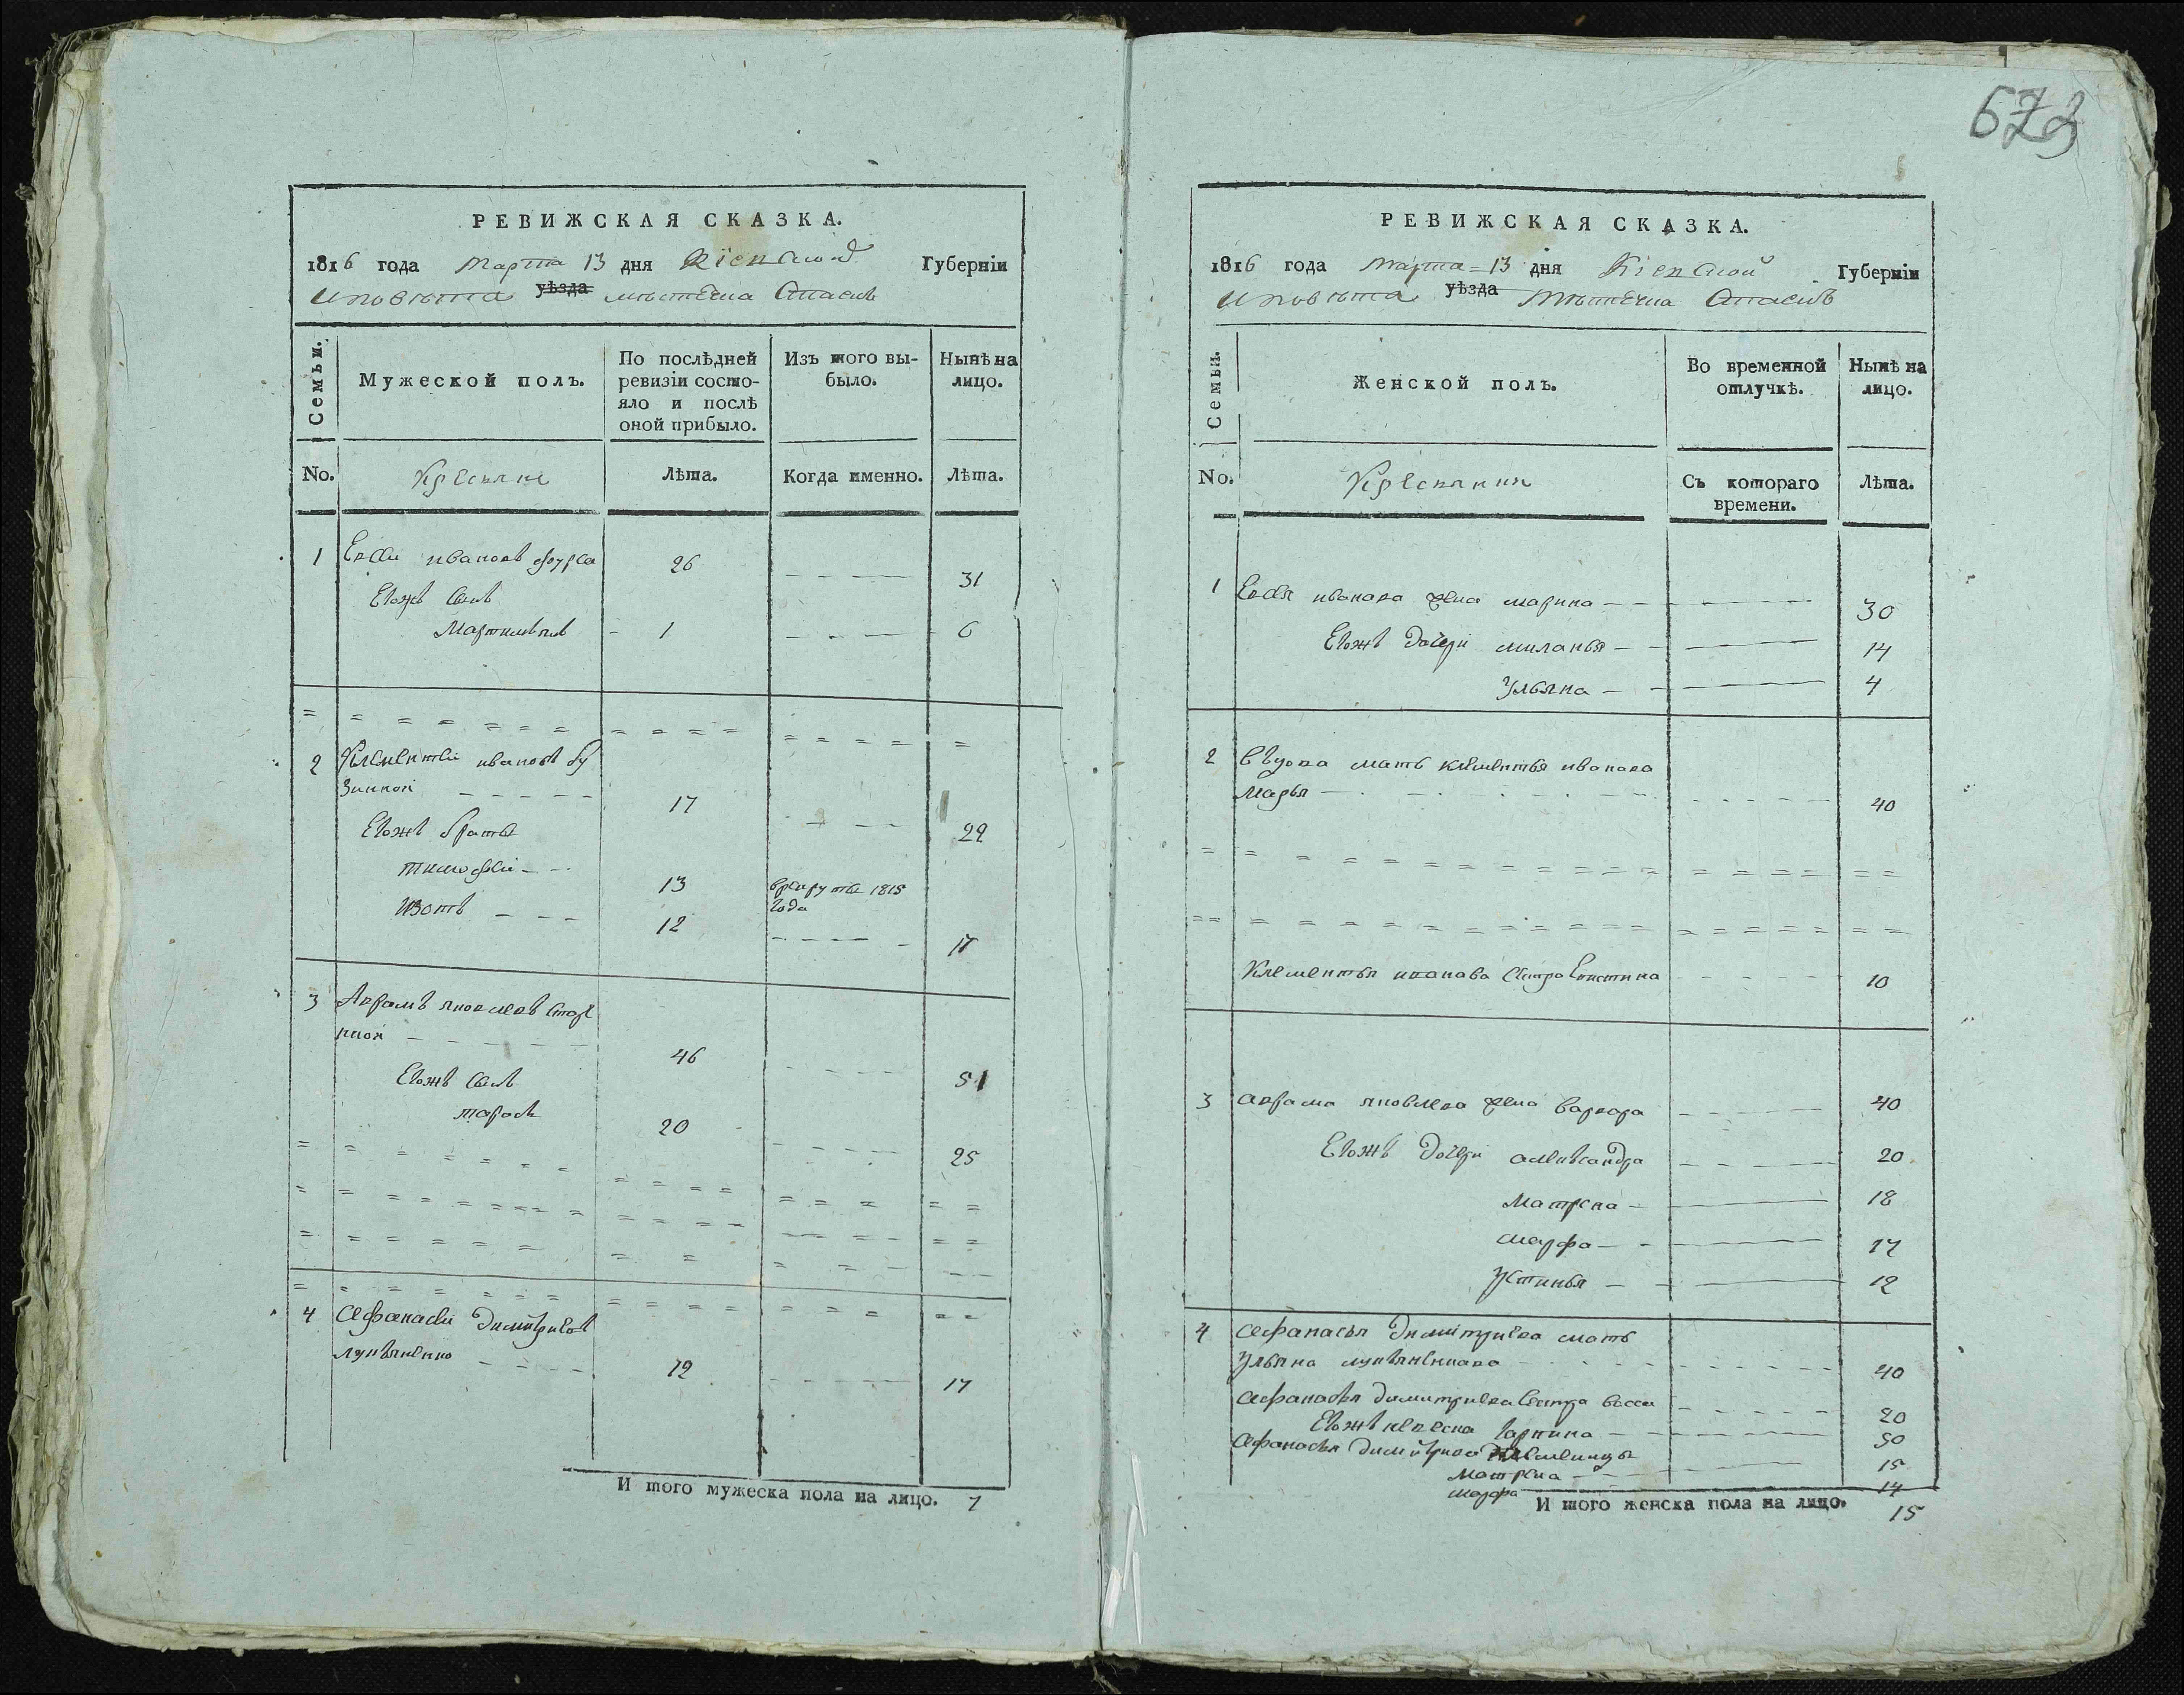 РЕВИЖСКАЯ СКАЗКА.
1816 года Марта 13 дня Кіевской Губерніи
и повѣта уѣзда мѣстечка Спасив
Семьи. Мужеской полъ. По послѣдней ревизіи состояло и послѣ оной прибыло. Изъ того выбыло. Нынѣ на лицо.
No. Крестьяне Лѣта. Когда именно. Лѣта.
1 Евсей Ивановъ Фурса 26 31
Евожъ сынъ
Мартинъ 1 6
2 Клементий Ивановъ бу
зинной 17 22
Евожъ братья
Тимофей 13 в рекруты 1815
года
Изотъ 12 17
3 Аврамъ Яковлевъ
46 51
Евожъ сынъ
Тарасъ 20 25
4 Афанасий Димитриевъ
Лукьяненко 12 17
И того мужеска пола на лицо. 7
673
РЕВИЖСКАЯ СКАЗКА.
1816 года Марта 13 дня Кіевской Губерніи
и повѣта уѣзда Мѣстечка Спасив
Семьи. Женской полъ. Во временной отлучкѣ. Нынѣ на лицо.
No. Крестьянки Съ котораго времени. Лѣта.
1 Евсея Иванова жена Марина 30
Евожъ дочери Миланья 14
Ульяна 4
2 Вдова мать Клементья Иванова
Марья 40
Клементья Иванова сестра 10
3 Аврама Яковлева жена Варвара 40
Евожъ дочери Александра 20
Матрена 18
Марфа 17
Устинья 12
4 Афанасья Димитриева мать
Ульяна Лукьяненкова 40
Афанасья Димитриева сестра Васса 20
Евожъ невеска 50
Афанасья Димитриева
Матрена 15
Марфа 14
И того женска пола на лицо. 15